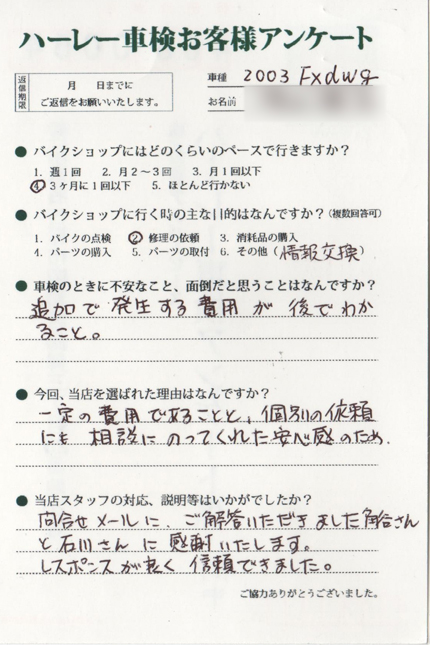 ハーレー車検お客様アンケート
返信期限
月　日までに
ご返信をお願いいたします。
車種 2003 Fxdwg
お名前
● バイクショップにはどのくらいのペースで行きますか？
1. 週1回　2. 月2～3回　3. 月1回以下
④ 3ヶ月に1回以下　5. ほとんど行かない
● バイクショップに行く時の主な目的はなんですか？（複数回答可）
1. バイクの点検　② 修理の依頼　3. 消耗品の購入
4. パーツの購入　5. パーツの取付　6. その他（情報交換）
● 車検のときに不安なこと、面倒だと思うことはなんですか？
追加で発生する費用が後でわか
ること。
● 今回、当店を選ばれた理由はなんですか？
一定の費用であることと、個別の依頼
にも相談にのってくれた安心感のため.
● 当店スタッフの対応、説明等はいかがでしたか？
問合せメールに、ご解答いただきました角谷さん
と石川さんに感謝いたします。
レスポンスが良く信頼できました。
ご協力ありがとうございました。